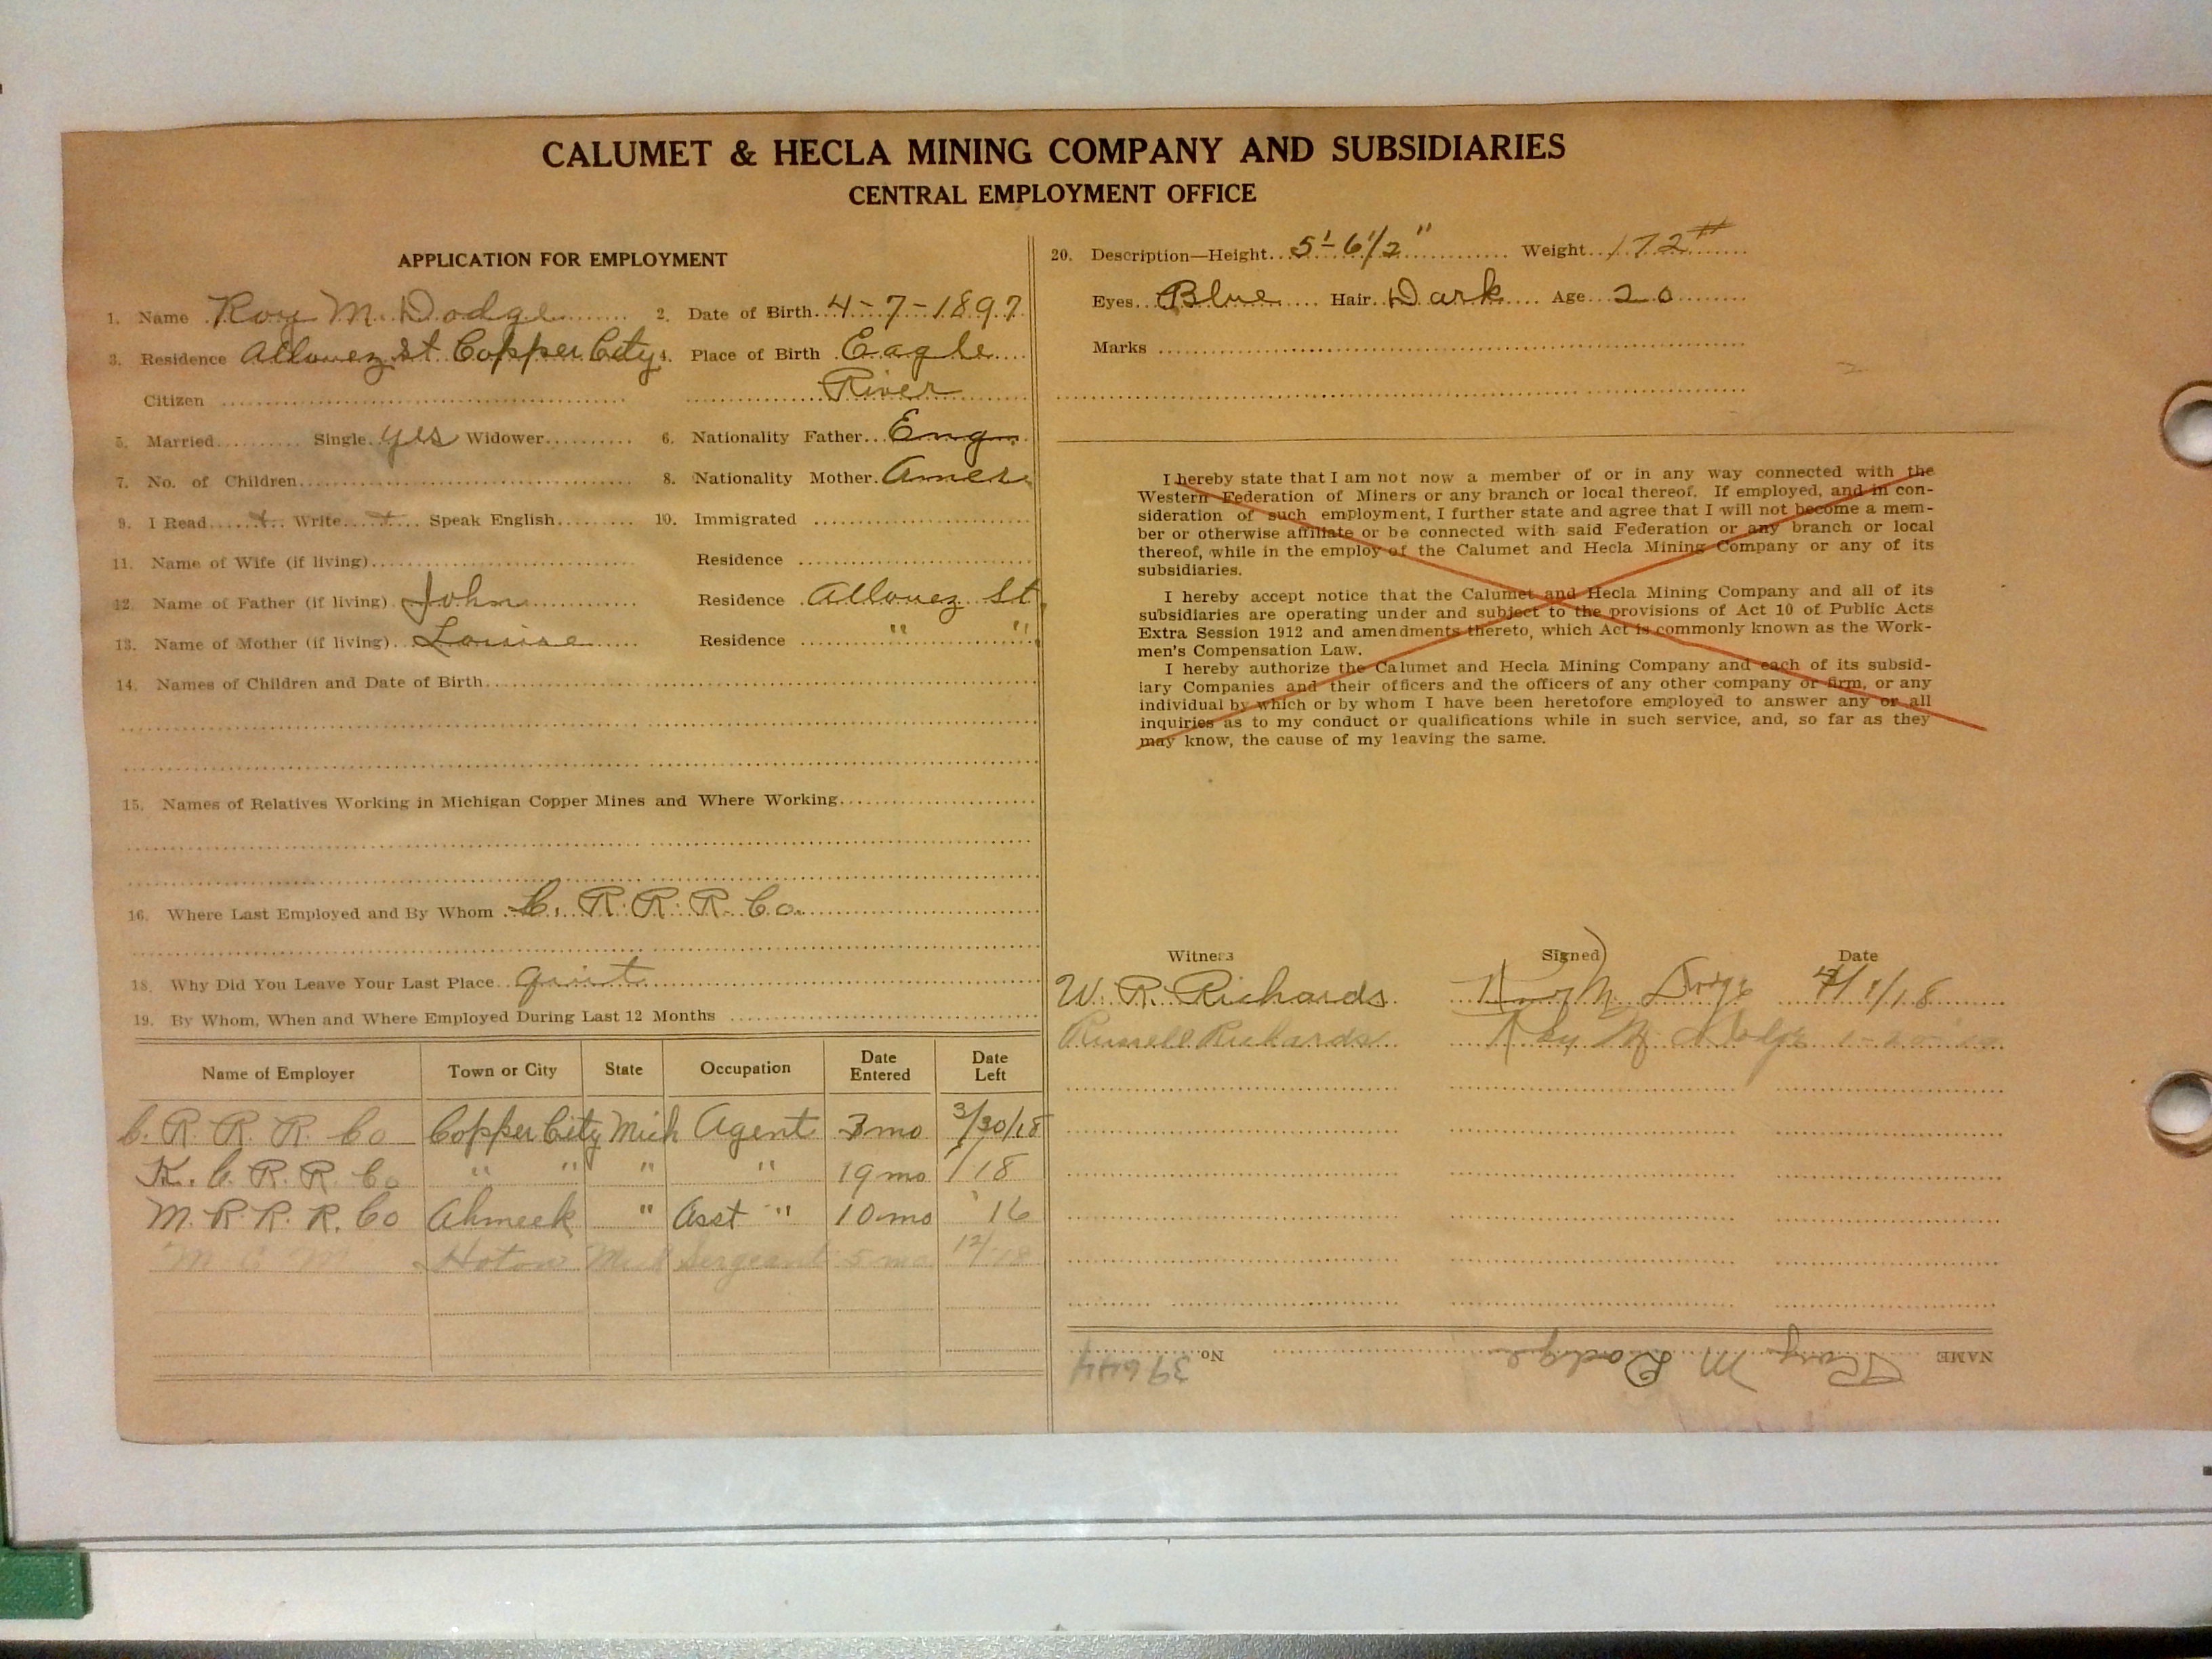 CALUMET & HECLA MINING COMPANY AND SUBSIDIARIES
CENTRAL EMPLOYMENT OFFICE
APPLICATION FOR EMPLOYMENT
1. Name Roy M. Dodge 2. Date of Birth 4-7-1897
3. Residence Allouez St Copper City 4. Place of Birth Eagle
River
Citizen
5. Married Single yes Widower 6. Nationality Father Eng
7. No. of Children 8. Nationality Mother Amer
9. I Read Write Speak English 10. Immigrated
11. Name of Wife (if living) Residence
12. Name of Father (if living) John Residence Allouez St
13. Name of Mother (if living) Louise Residence " "
14. Names of Children and Date of Birth
15. Names of Relatives Working in Michigan Copper Mines and Where Working
16. Where Last Employed and By Whom C. R. R. R. Co.
18. Why Did You Leave Your Last Place quit
19. By Whom, When and Where Employed During Last 12 Months
Name of Employer Town or City State Occupation Date Entered Date Left
C. R. R. R. Co Copper City Mich Agent 3 mo 3/30/18
K. C. R. R. Co " " " " 19 mo 1/18
M. R. R. R. Co Ahmeek " Asst " 10 mo 16
M C M Hoton Mich Sergeant 5 mo 12/18
20. Description—Height 5'-6 1/2" Weight 172#
Eyes Blue Hair Dark Age 20
Marks
I hereby state that I am not now a member of or in any way connected with the
Western Federation of Miners or any branch or local thereof. If employed, and in con-
sideration of such employment, I further state and agree that I will not become a mem-
ber or otherwise affiliate or be connected with said Federation or any branch or local
thereof, while in the employ of the Calumet and Hecla Mining Company or any of its
subsidiaries.
I hereby accept notice that the Calumet and Hecla Mining Company and all of its
subsidiaries are operating under and subject to the provisions of Act 10 of Public Acts
Extra Session 1912 and amendments thereto, which Act is commonly known as the Work-
men's Compensation Law.
I hereby authorize the Calumet and Hecla Mining Company and each of its subsid-
iary Companies and their officers and the officers of any other company or firm, or any
individual by which or by whom I have been heretofore employed to answer any or all
inquiries as to my conduct or qualifications while in such service, and, so far as they
may know, the cause of my leaving the same.
Witness Signed Date
W. R. Richards Roy M. Dodge 4/1/18
Russell Richards Roy M. Dodge
NAME Roy M Dodge No. 39644